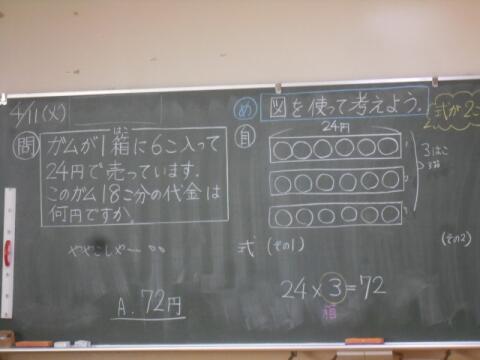 4/11(火)
問
ガムが1箱に6こ入って
はこ
24円で売っています.
このガム18こ分の代金は
何円ですか.
ややこしやー
A. 72円
め
図を使って考えよう.
式が2こ
自
24円
3はこ
3箱
式 (その1)
(その2)
24×3=72
箱